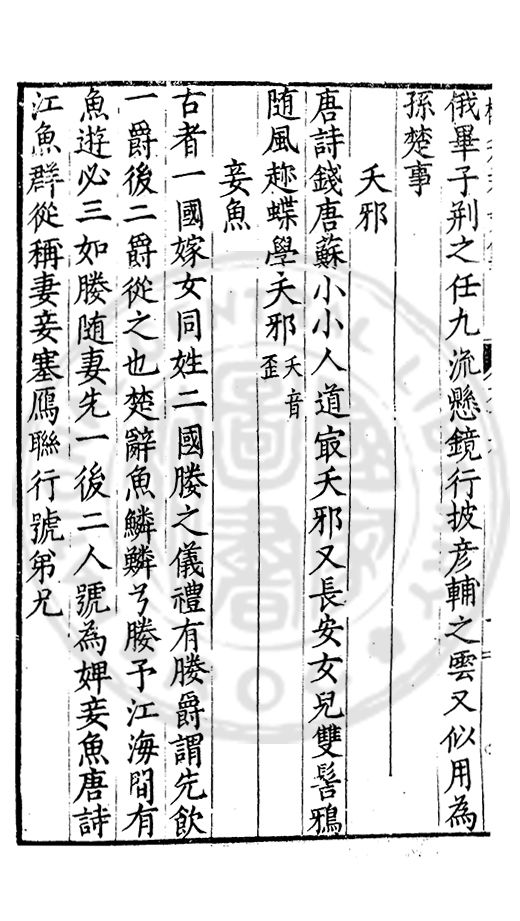 俄畢子荆之任九流懸鏡行披彦輔之雲又似用為
孫楚事
夭邪
唐詩錢唐蘇小小人道㝡夭邪又長安女兒雙髻鴉
随風趂蝶學夭邪夭音歪
妾魚
古者一國嫁女同姓二國媵之儀禮有媵爵謂先飲
一爵後二爵從之也楚辭魚鱗鱗兮媵予江海間有
魚遊必三如媵随妻先一後二人號為婢妾魚唐詩
江魚群從稱妻妾塞鴈聯行號弟兄